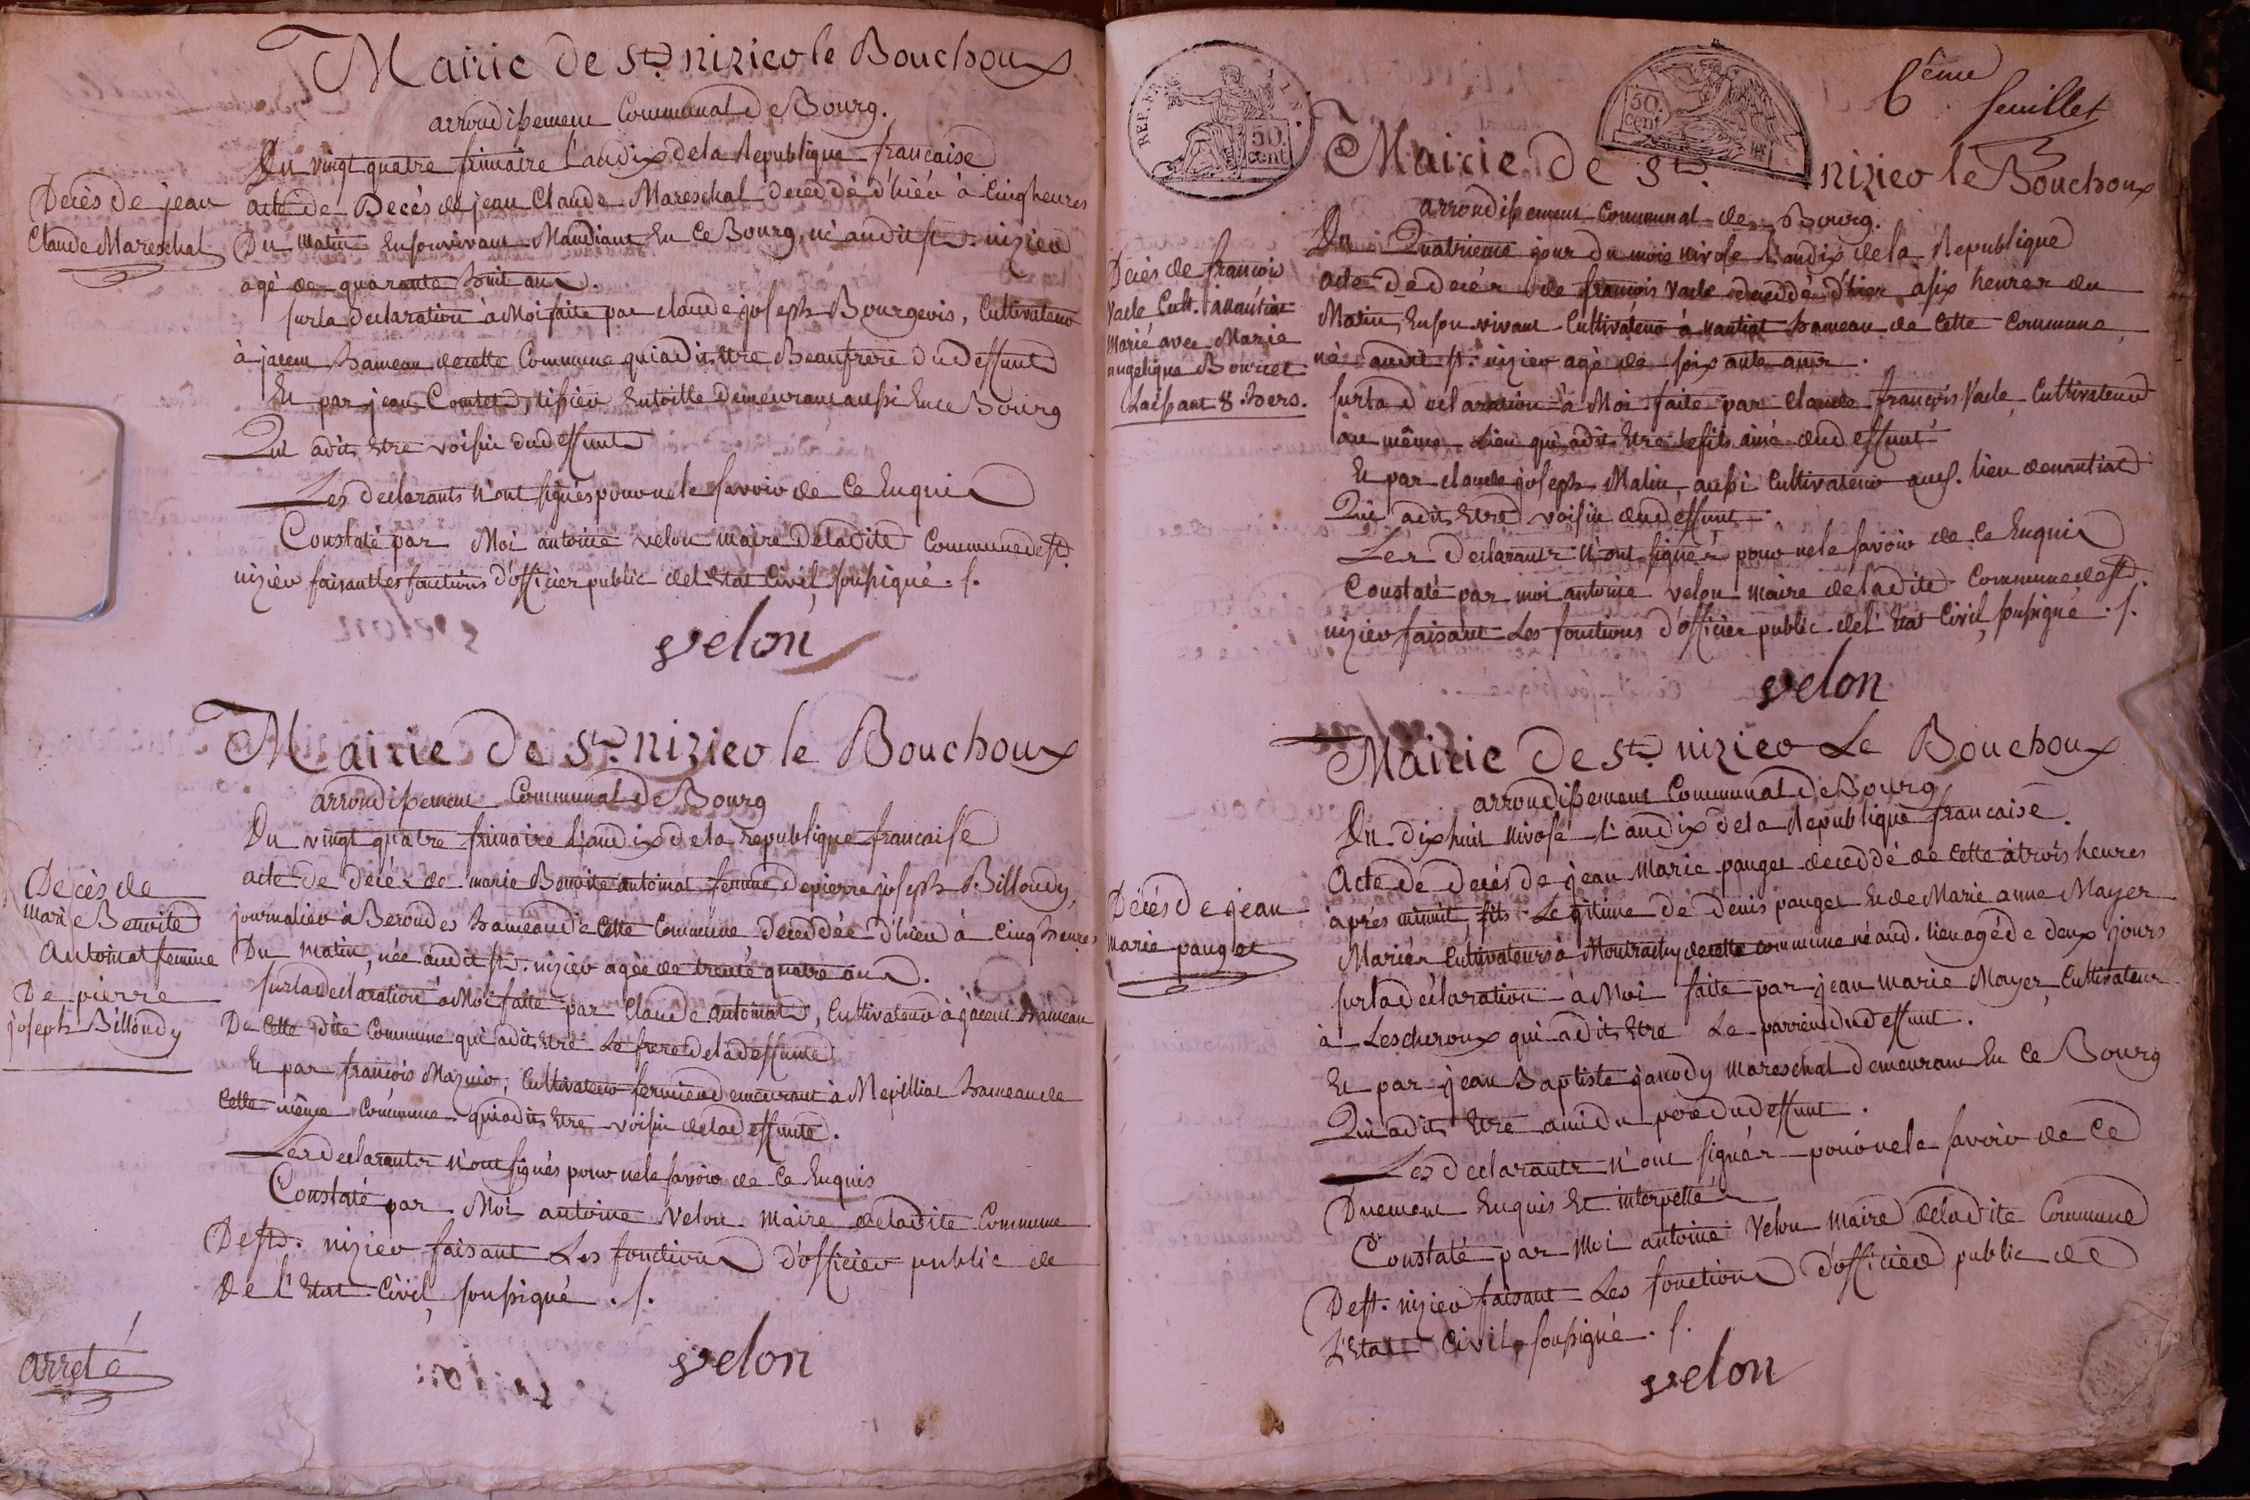 Mairie de St. nizier le Bouchoux
arrondissement Communal de Bourg.
Du vingt quatre frimaire l'an dix de la Republique francaise
Decès de jean
Claude Mareschal
acte de Decès de jean Claude Mareschal decedé d'hiér à Cinq heures
Du matin En son vivant Mandiant En Ce Bourg, né audit st. nizier
agé de quarante huit ans.
sur la declaration à Moi faite par claude joseph Bourgeois, Cultivateur
à jacem hameau de cette Commune qui a dit Etre Beaufrere du deffunt
Et par jean Comtet, tissier En toille demeurant aussi En ce Bourg
Qui a dit Etre voisin du deffunt
Les declarants n'ont signés pour ne le savoir de Ce Enquis
Constaté par Moi antoine velon maire de la dite Commune de st.
nizier faisant les fonctions d'officier public de l'Etat Civil, soussigné. /.
velon
Mairie de St. nizier le Bouchoux
arrondissement Communal de Bourg
Du vingt quatre frimaire l'an dix de la republique francaise
Decès de
Marie Benoite
Automat femme
De pierre
joseph Billoudy
acte de decés de marie Benoite automat femme de pierre joseph Billoudy,
journalier à Beroudes hameau de Cette Commune, deceddée d'hier à Cinq heures
Du matin, née audit st. nizier agée de trente quatre ans.
sur la declaration à Moi faitte par Claude automat, Cultivateur à jacem hameau
De Cette dite Commune qui a dit Etre Le frere de la deffunte
Et par francois Maznio, Cultivateur fermier demeurant à Mepilliat hameau de
Cette même Commune qui a dit Etre voisin de la deffunte.
Les declarants n'ont signés pour ne le savoir de Ce Enquis
Constaté par Moi antoine Velon maire de la dite Commune
De st. nizier faisant Les fonctions d'officier public de
De l'Etat Civil, soussigné. /.
velon
arreté
6ème
feuillet
REP. FRA.
50
cent
50
cent
Mairie de St. nizier le Bouchoux
arrondissement Communal de Bourg.
Du Quatrieme jour du mois nivose l'an dix de la Republique
Décès de francois
Vacle Cult. à nantiat
marié avec Marie
angelique Bouvier
Laissant 8 hers.
acte de decés de francois Vacle decedé d'hier a six heures du
Matin, En son vivant Cultivateur à nantiat hameau de cette Commune,
né audit st. nizier agé de soixante ans.
sur la declaration à Moi faite par claude francois Vacle Cultivateur
au même Lieu qui a dit Etre le fils ainé du deffunt
Et par claude joseph Malin, aussi Cultivateur aud. lieu de nantiat
Qui a dit Etre voisin du deffunt.
Les Declarants n'ont signés pour ne le savoir de Ce Enquis
Constaté par moi antoine velon maire de la dite Commune de st.
nizier faisant Les fonctions d'officier public de l'Etat Civil, soussigné. /.
velon
Mairie de St. nizier Le Bouchoux
arrondissement Communal de Bourg
Du dixhuit nivose l'an dix de la Republique francaise.
Décés de jean
marie pauget
Acte de decés de jean Marie pauget decedé de cette à trois heures
après minuit, fils Legitime de denis pauget Et de Marie anne Mayer
Mariés Cultivateurs à Montrachy de cette commune né aud. lieu agé de deux jours
sur la déclaration à Moi faite par jean marie Mayer, Cultivateur
à Lescheroux qui a dit Etre Le parrein du deffunt.
Et par jean Baptiste janody Mareschal demeurant En Ce Bourg
Qui a dit Etre ami du pere du deffunt.
Les declarants n'ont signés pour ne le savoir de Ce
Duement Enquis Et interpellé
Constaté par Moi antoine Velon maire de la dite Commune
De st. nizier faisant Les fonctions d'officier public de
L'Etat Civil, soussigné. /.
velon